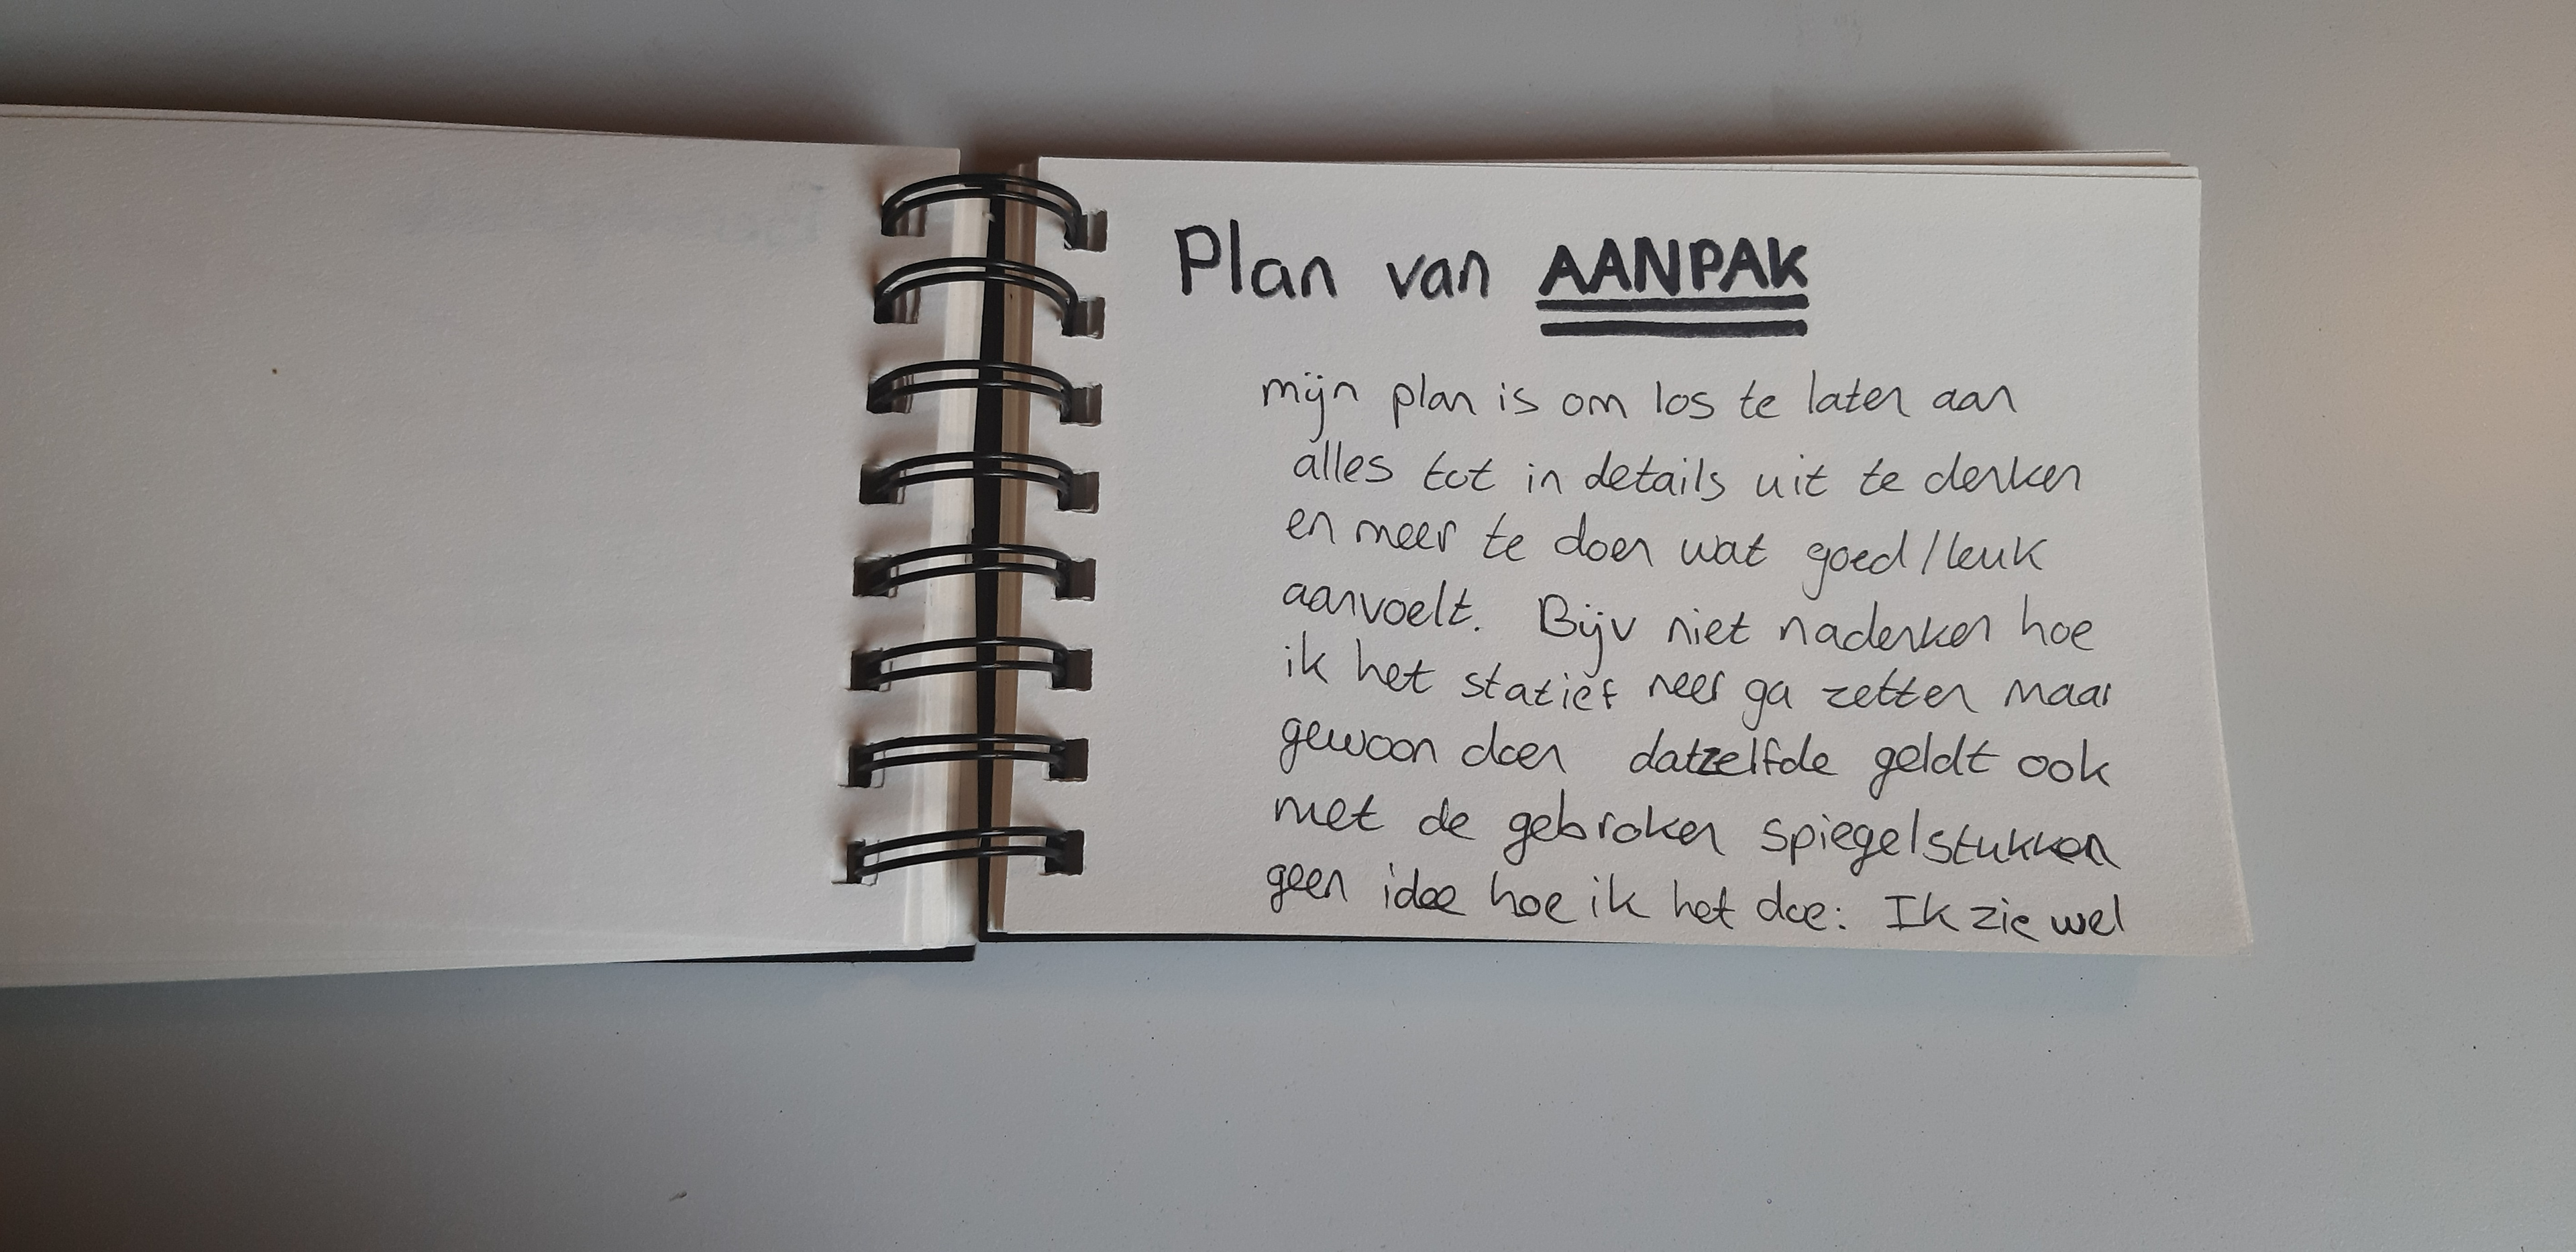 Plan van AANPAK
mijn plan is om los te laten aan
alles tot in details uit te denken
en meer te doen wat goed/leuk
aanvoelt. Bijv niet nadenken hoe
ik het statief neer ga zetten maar
gewoon doen datzelfde geldt ook
met de gebroken spiegelstukken
geen idee hoe ik het doe: Ik zie wel